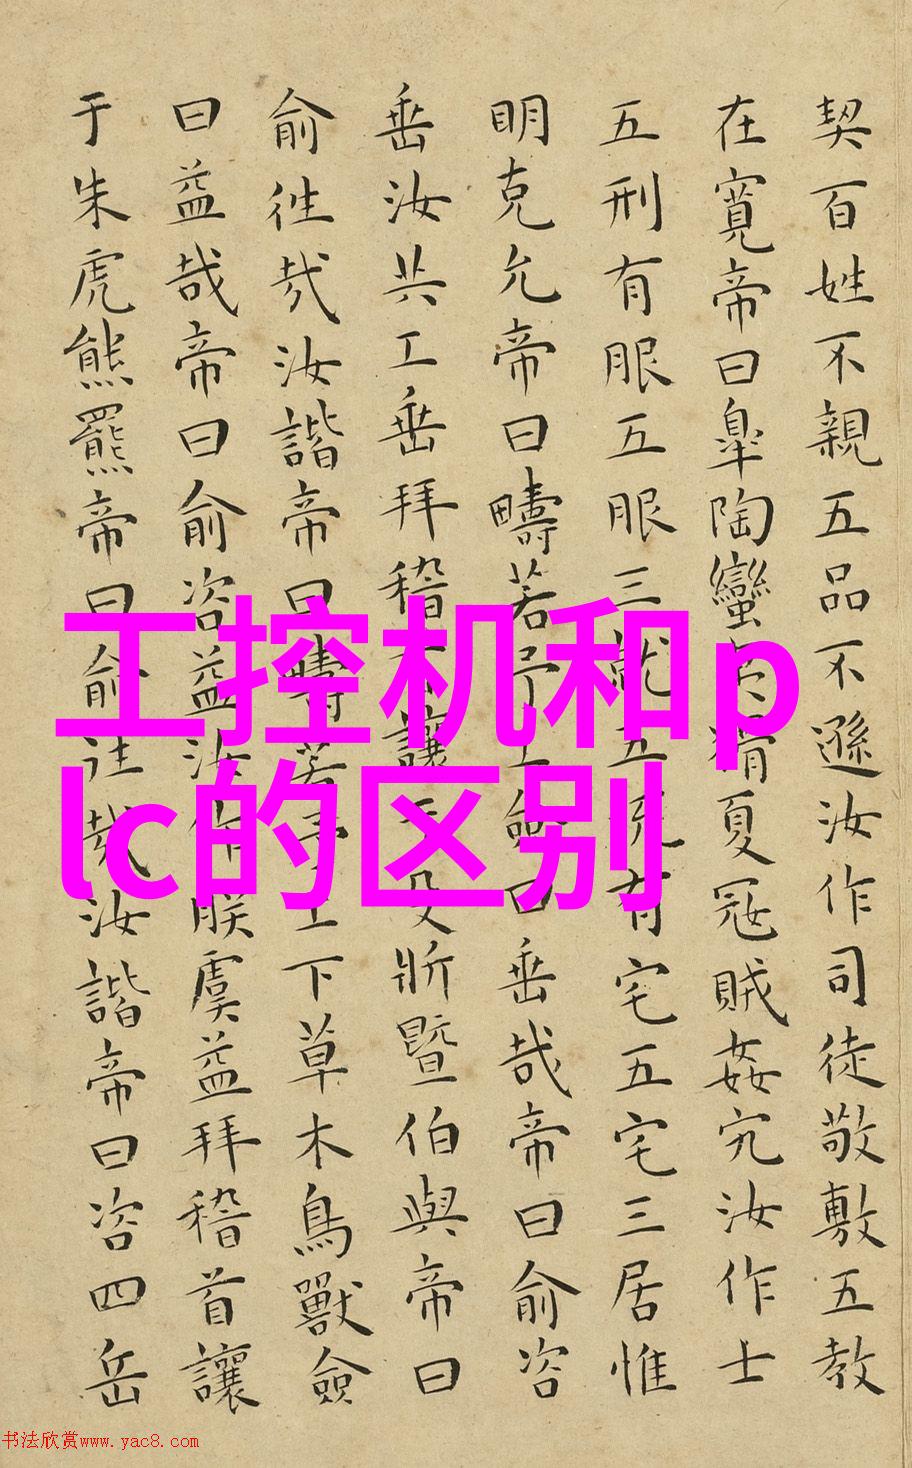 契百姓不親五品不遜汝作司徒敬敷五教
在寬帝曰皐陶蠻夷猾夏寇賊姦宄汝作士
五刑有服五服三就五流有宅五宅三居惟
明克允帝曰疇若予工僉曰垂哉帝曰俞咨
垂汝共工垂拜稽讓于殳斨暨伯與帝曰
俞往哉汝諧帝曰疇若予上下草木鳥獸僉
曰益哉帝曰俞咨益汝作朕虞益拜稽首讓
于朱虎熊羆帝曰俞往哉汝諧帝曰咨四岳
工控机和p
lc的区别
书法欣赏www.yac8.com